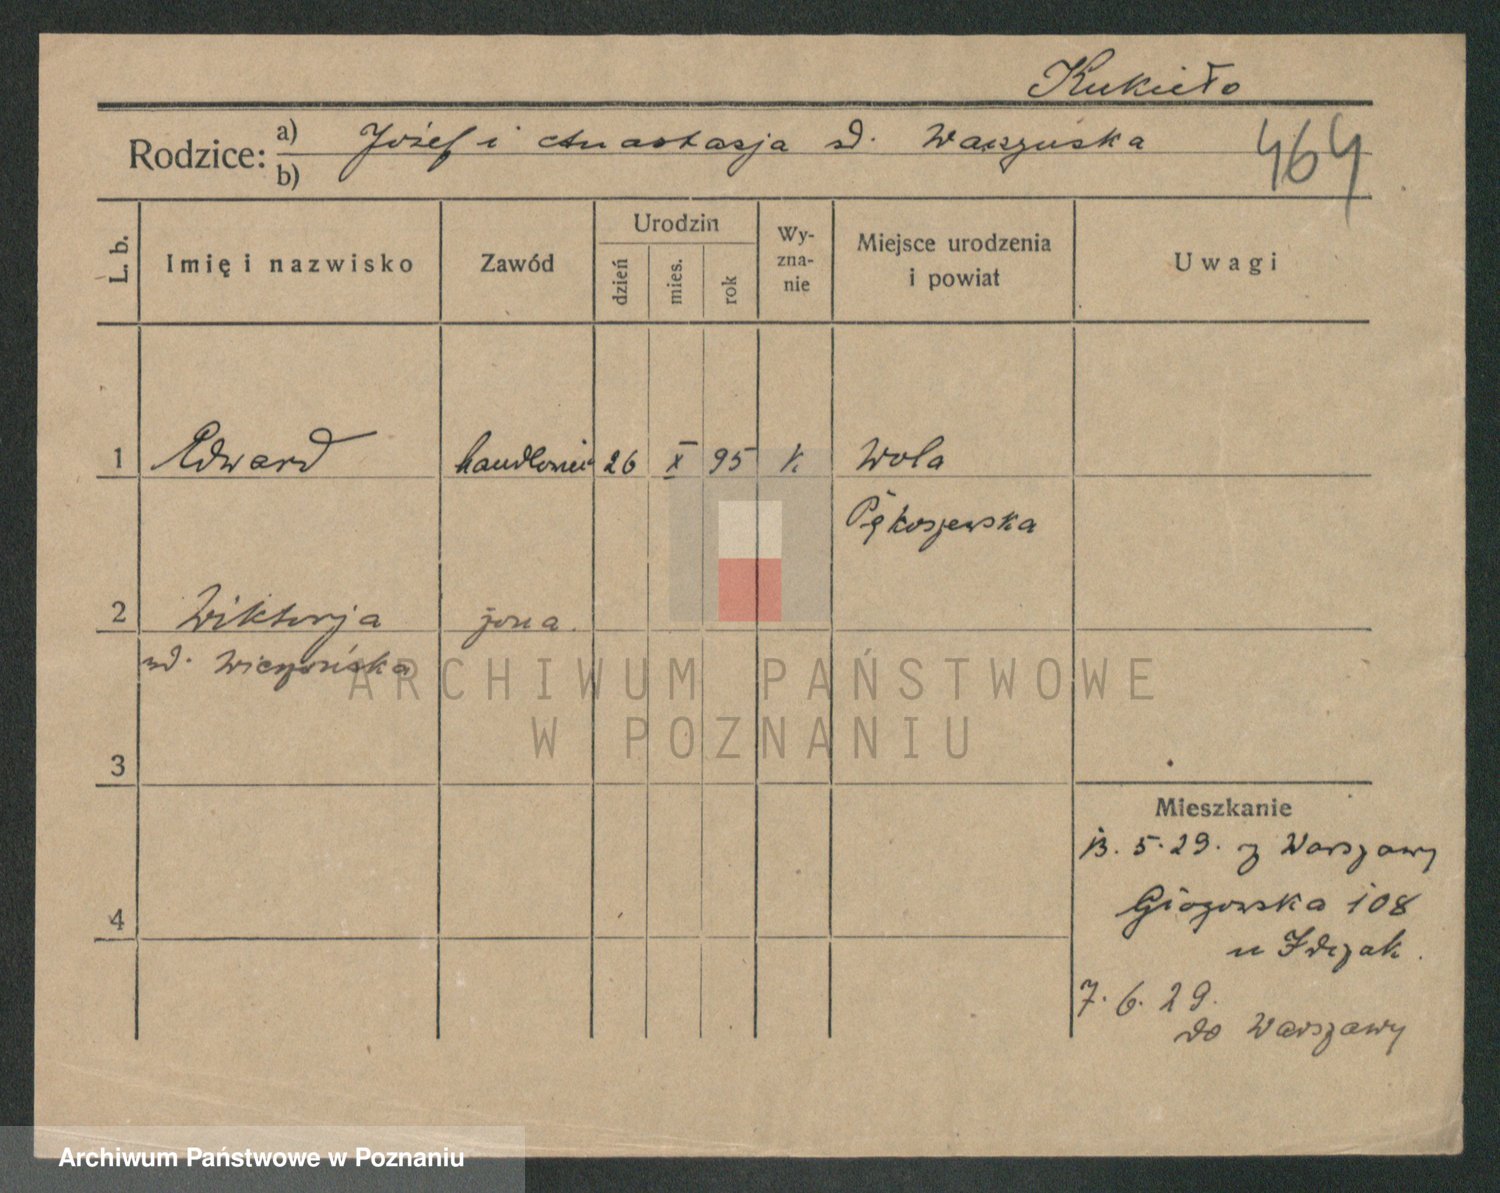 Kukieło
Rodzice: a) Józef i Anastasja d. Waszuska
b)
464
L. b.
Imię i nazwisko
Zawód
Urodzin
dzień
mies.
rok
Wy-
zna-
nie
Miejsce urodzenia
i powiat
Uwagi
1 Edward handlowiec 26 X 95 k Wola
Pękoszewska
2 Wiktorja żona
d.
3
4
Mieszkanie
13. 5. 29. z Warszawy
108
u
7. 6. 29.
do Warszawy
ARCHIWUM PAŃSTWOWE
W POZNANIU
Archiwum Państwowe w Poznaniu